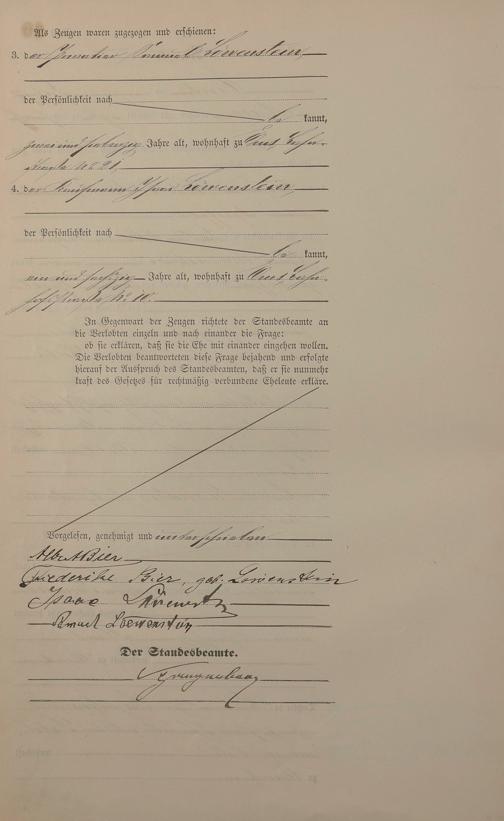 Als Zeugen waren zugezogen und erschienen:
3. der Löwenstein,
der Persönlichkeit nach
be kannt,
Jahre alt, wohnhaft zu
4. der Kaufmann Löwenstein,
der Persönlichkeit nach
be kannt,
ein und sechzig Jahre alt, wohnhaft zu
In Gegenwart der Zeugen richtete der Standesbeamte an
die Verlobten einzeln und nach einander die Frage:
ob sie erklären, daß sie die Ehe mit einander eingehen wollen.
Die Verlobten beantworteten diese Frage bejahend und erfolgte
hierauf der Ausspruch des Standesbeamten, daß er sie nunmehr
kraft des Gesetzes für rechtmäßig verbundene Eheleute erkläre.
Vorgelesen, genehmigt und unterschrieben
Albert Bier
Friederike Bier, geb. Loewenstein
Isaac
Loewenstein
Der Standesbeamte.